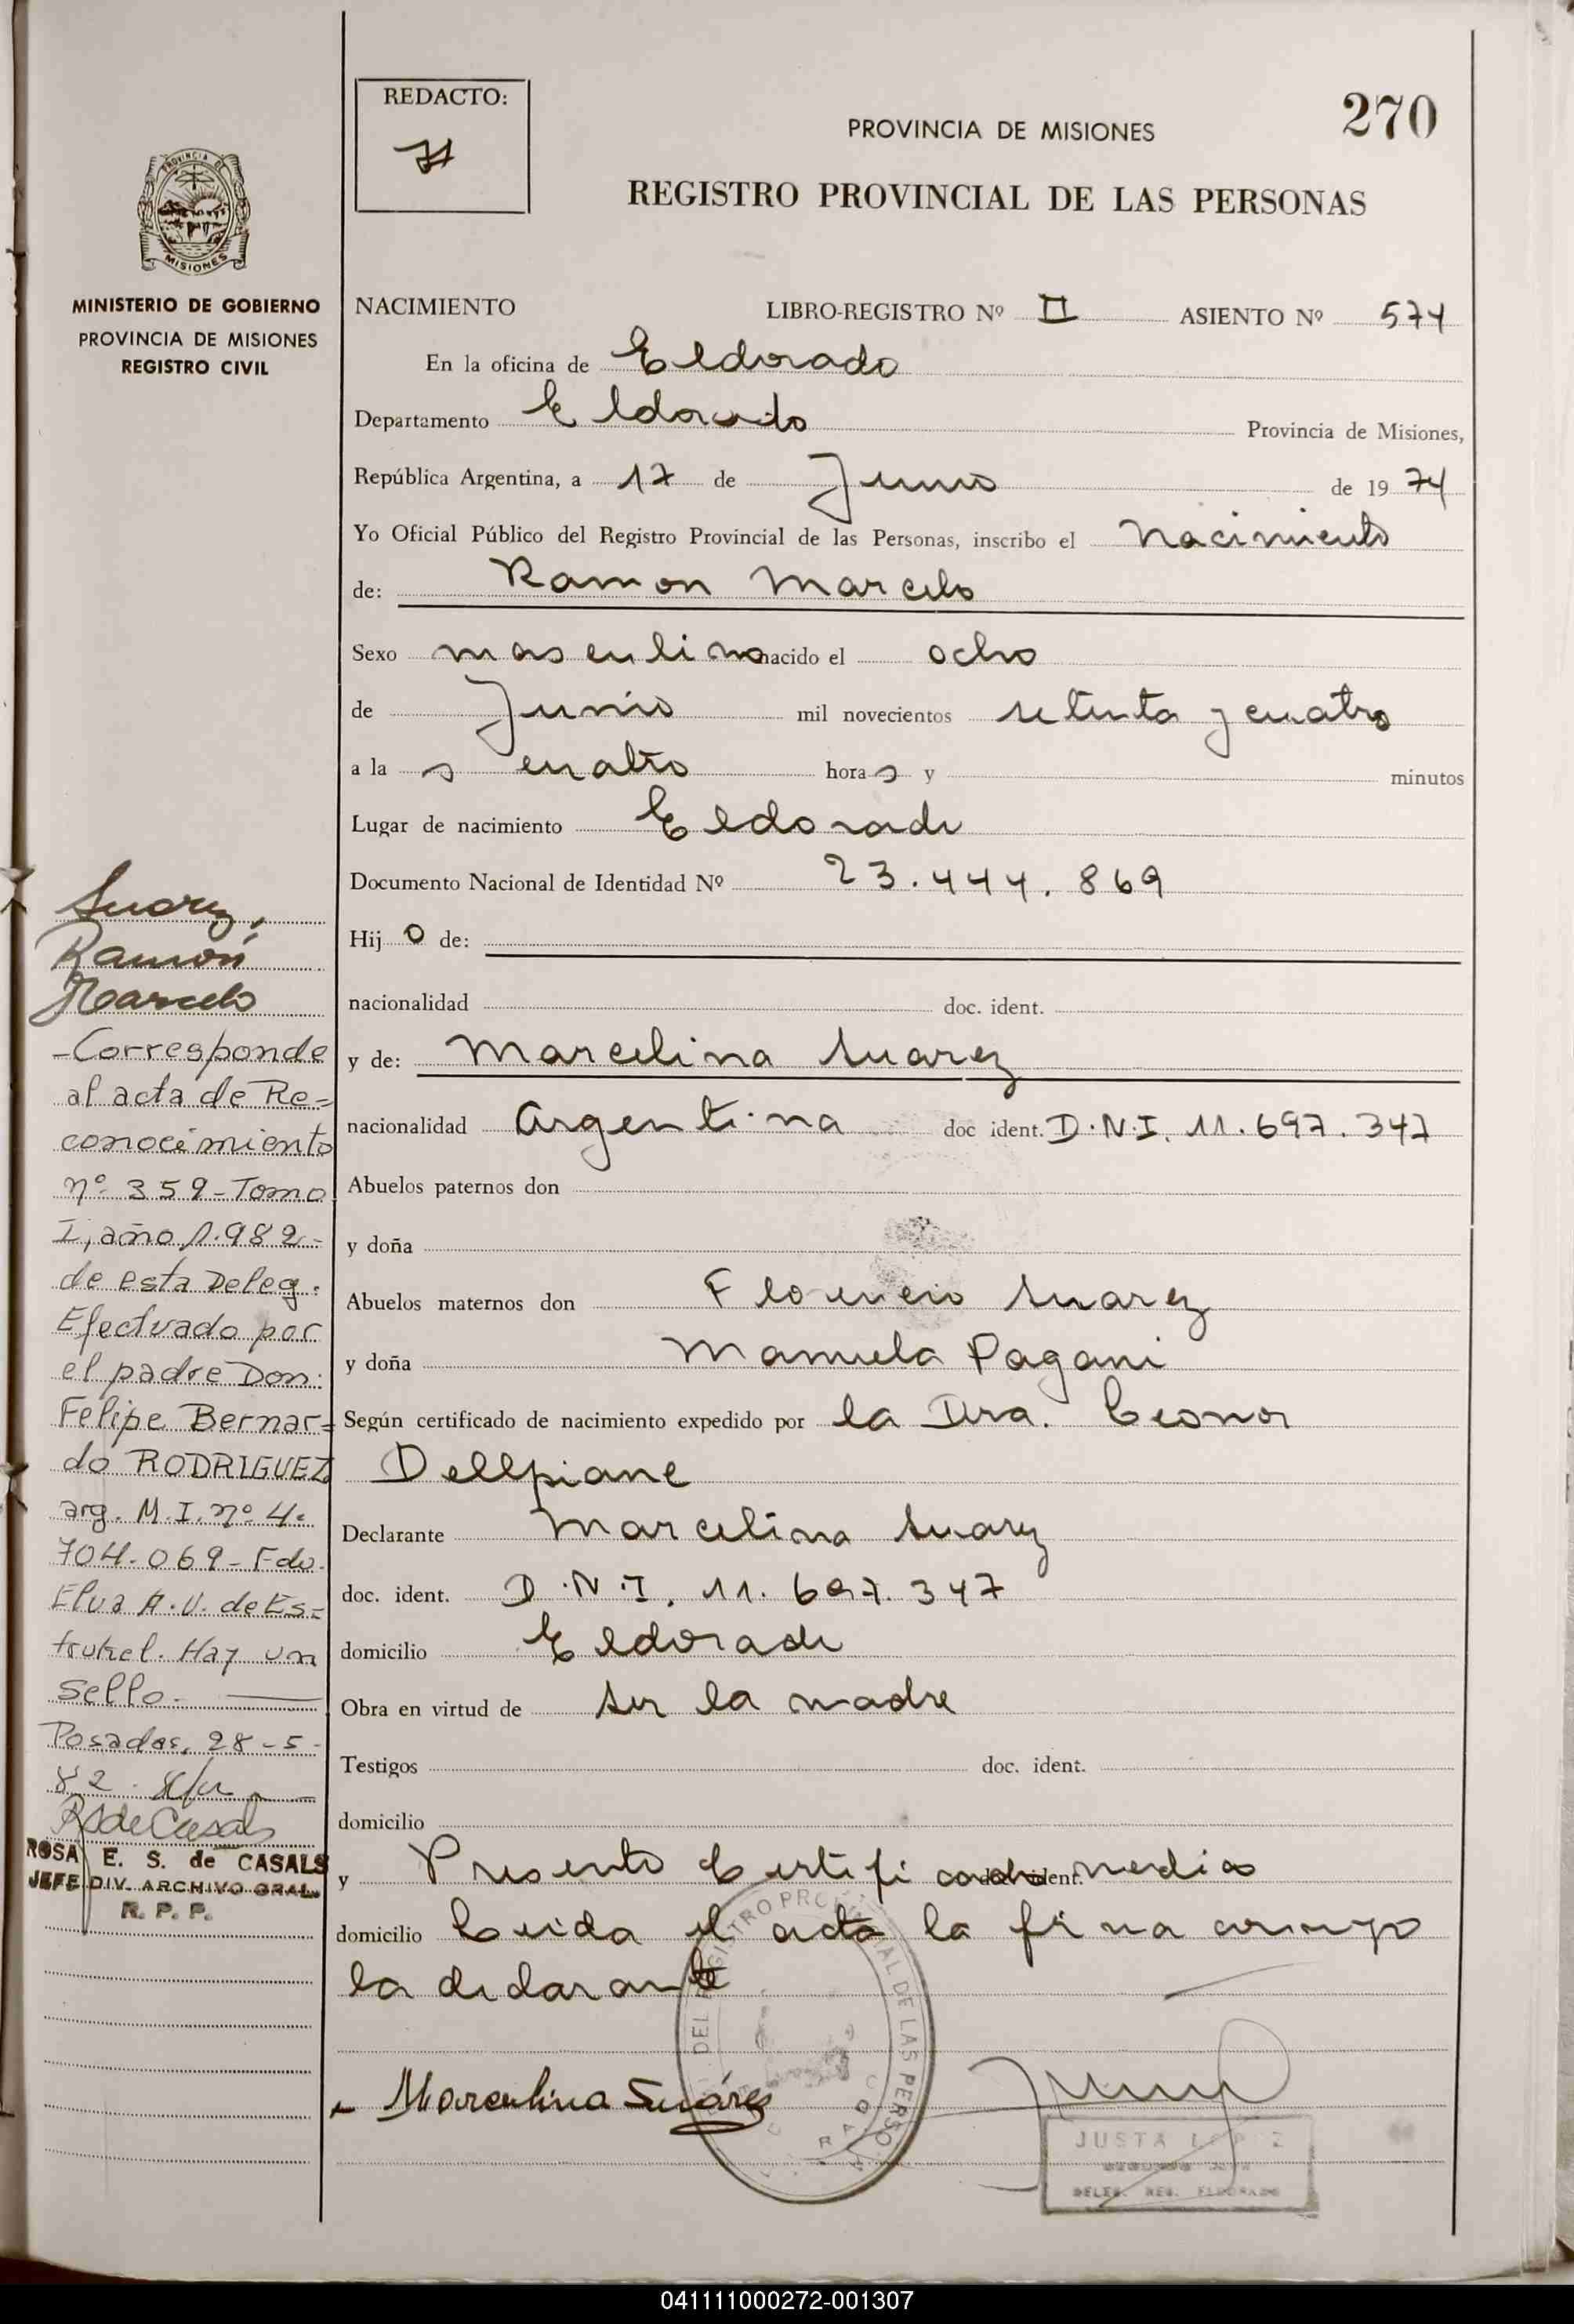 REDACTO:
270
PROVINCIA DE MISIONES
REGISTRO PROVINCIAL DE LAS PERSONAS
PROVINCIA DE
MISIONES
MINISTERIO DE GOBIERNO
PROVINCIA DE MISIONES
REGISTRO CIVIL
NACIMIENTO LIBRO-REGISTRO Nº II ASIENTO Nº 574
En la oficina de Eldorado
Departamento Eldorado Provincia de Misiones,
República Argentina, a 17 de Junio de 1974
Yo Oficial Público del Registro Provincial de las Personas, inscribo el Nacimiento
de: Ramon Marcelo
Sexo masculino nacido el ocho
de Junio mil novecientos setenta y cuatro
a la s cuatro hora s y minutos
Lugar de nacimiento Eldorado
Documento Nacional de Identidad Nº 23.444.869
Hij o de:
nacionalidad doc. ident.
y de: Marcelina Suarez
nacionalidad Argentina doc ident. D.N.I. 11.697.347
Abuelos paternos don
y doña
Abuelos maternos don Florencio Suarez
y doña Manuela Pagani
Según certificado de nacimiento expedido por la Dra. Leonor
Dellpiane
Declarante Marcelina Suarez
doc. ident. D.N.I. 11.697.347
domicilio Eldorado
Obra en virtud de ser la madre
Testigos doc. ident.
domicilio
y Presento Certificado doc. ident. medico
domicilio Leida el acta la firma conmigo
la declarante
Marcelina Suárez
JUSTA LOPEZ
DELEG. REG. ELDORADO
Suarez,
Ramón
Marcelo
-Corresponde
al acta de Re=
conocimiento
nº 359-Tomo
I, año 1.982-
de esta Deleg.
Efectuado por
el padre Don:
Felipe Bernar=
do RODRIGUEZ
arg. M.I. nº 4.
704.069-Fdo.
Elva A.V. de Es=
trukel. Hay un
sello.-
Posadas, 28-5-
82.
RSdeCasals
ROSA E. S. de CASALS
JEFE DIV. ARCHIVO GRAL.
R. P. P.
041111000272-001307